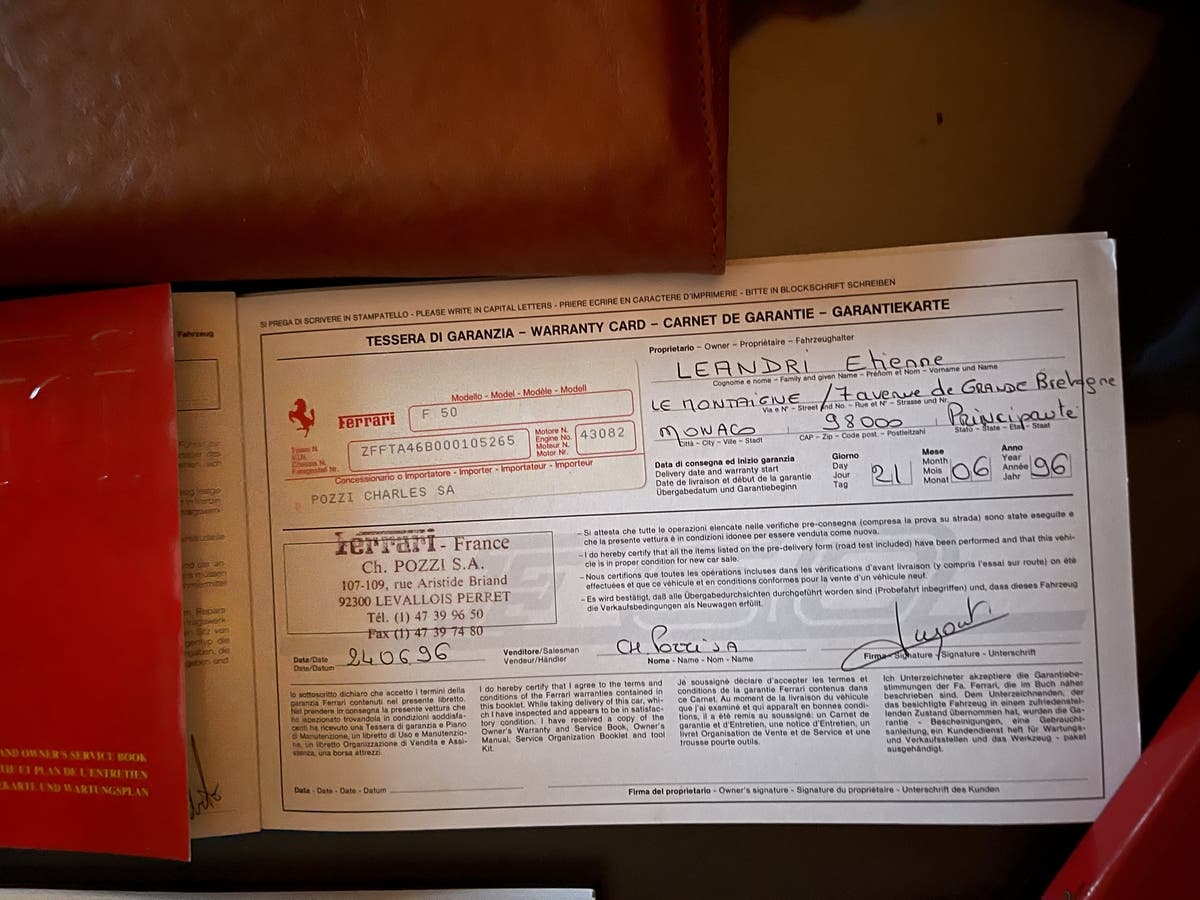 SI PREGA DI SCRIVERE IN STAMPATELLO - PLEASE WRITE IN CAPITAL LETTERS - PRIERE ECRIRE EN CARACTERE D'IMPRIMERIE - BITTE IN BLOCKSCHRIFT SCHREIBEN
TESSERA DI GARANZIA – WARRANTY CARD – CARNET DE GARANTIE – GARANTIEKARTE
Fahrzeug
Modello - Model - Modèle - Modell
Ferrari
F 50
Telaio N.
V.I.N.
Chassis N.
Fahrgestell Nr.
ZFFTA46B000105265
Motore N.
Engine No.
Moteur N.
Motor Nr.
43082
Concessionario o Importatore - Importer - Importateur - Importeur
POZZI CHARLES SA
Proprietario – Owner – Propriétaire – Fahrzeughalter
LEANDRI Etienne
Cognome e nome – Family and given Name – Prénom et Nom – Vorname und Name
LE MONTAIGNE / 7 avenue de GRANDE Bretagne
Via e N° - Street and No. - Rue et N° - Strasse und Nr.
MONACO 98000 Principauté
Città - City - Ville - Stadt
CAP – Zip - Code post. - Postleitzahl
Stato - State - Etat - Staat
Data di consegna ed inizio garanzia
Delivery date and warranty start
Date de livraison et début de la garantie
Übergabedatum und Garantiebeginn
Giorno
Day
Jour
Tag
21
Mese
Month
Mois
Monat
06
Anno
Year
Année
Jahr
96
Ferrari - France
Ch. POZZI S.A.
107-109, rue Aristide Briand
92300 LEVALLOIS PERRET
Tél. (1) 47 39 96 50
Fax (1) 47 39 74 80
– Si attesta che tutte le operazioni elencate nelle verifiche pre-consegna (compresa la prova su strada) sono state eseguite e
che la presente vettura è in condizioni idonee per essere venduta come nuova.
– I do hereby certify that all the items listed on the pre-delivery form (road test included) have been performed and that this vehi-
cle is in proper condition for new car sale.
– Nous certifions que toutes les opérations incluses dans les vérifications d'avant livraison (y compris l'essai sur route) on été
effectuées et que ce véhicule et en conditions conformes pour la vente d'un véhicule neuf.
– Es wird bestätigt, daß alle Übergabedurchsichten durchgeführt worden sind (Probefahrt inbegriffen) und, dass dieses Fahrzeug
die Verkaufsbedingungen als Neuwagen erfüllt.
Data/Date
Date/Datum
240696
Venditore/Salesman
Vendeur/Händler
CH Pozzi SA
Nome - Name - Nom - Name
Firma - Signature - Signature - Unterschrift
Io sottoscritto dichiaro che accetto i termini della
garanzia Ferrari contenuti nel presente libretto.
Nel prendere in consegna la presente vettura che
ho ispezionato trovandola in condizioni soddisfa-
centi ho ricevuto una Tessera di garanzia e Piano
di Manutenzione, un libretto di Uso e Manutenzio-
ne, un libretto Organizzazione di Vendita e Assi-
stenza, una borsa attrezzi.
I do hereby certify that I agree to the terms and
conditions of the Ferrari warranties contained in
this booklet. While taking delivery of this car, whi-
ch I have inspected and appears to be in satisfac-
tory condition. I have received a copy of the
Owner's Warranty and Service Book, Owner's
Manual, Service Organization Booklet and tool
Kit.
Je soussigné déclare d'accepter les termes et
conditions de la garantie Ferrari contenus dans
ce Carnet. Au moment de la livraison du véhicule
que j'ai examiné et qui apparaît en bonnes condi-
tions, il a été remis au soussigné: un Carnet de
garantie et d'Entretien, une notice d'Entretien, un
livret Organisation de Vente et de Service et une
trousse pourte outils.
Ich Unterzeichneter akzeptiere die Garantiebe-
stimmungen der Fa. Ferrari, die im Buch näher
beschrieben sind. Dem Unterzeichnenden, der
das besichtigte Fahrzeug in einem zufriedenstel-
lenden Zustand übernommen hat, wurden die Ga-
rantie - Bescheinigungen, eine Gebraucht-
sanleitung, ein Kundendienst heft für Wartungs-
und Verkaufsstellen und das Werkzeug - paket
ausgehändigt.
Data - Date - Date - Datum
Firma del proprietario - Owner's signature - Signature du propriétaire - Unterschrift des Kunden
AND OWNER'S SERVICE BOOK
TIE ET PLAN DE L'ENTRETIEN
EKARTE UND WARTUNGSPLAN